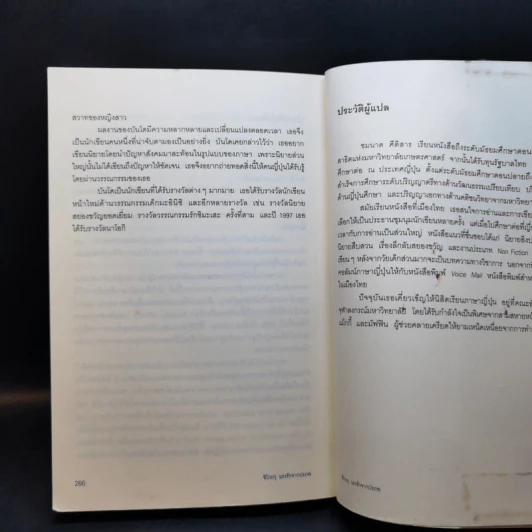 สวาทของหญิงสาว
ผลงานของบันโตมีความหลากหลายและเปลี่ยนแปลงตลอดเวลา เธอจึง
เป็นนักเขียนคนหนึ่งที่น่าจับตามองเป็นอย่างยิ่ง บันโตเคยกล่าวไว้ว่า เธออยาก
เขียนนิยายโดยนำปัญหาสังคมมาสะท้อนในรูปแบบของภาษา เพราะนิยายส่วน
ใหญ่นั้นไม่ได้เขียนถึงปัญหาให้ชัดเจน เธอจึงอยากถ่ายทอดสิ่งนี้ให้คนญี่ปุ่นได้รับรู้
โดยผ่านวรรณกรรมของเธอ
บันโตเป็นนักเขียนที่ได้รับรางวัลต่าง ๆ มากมาย เธอได้รับรางวัลนักเขียน
หน้าใหม่ด้านวรรณกรรมเด็กมะอินิชิ และอีกหลายรางวัล เช่น รางวัลนิยาย
สยองขวัญยอดเยี่ยม รางวัลวรรณกรรมรักชิมะเสะ ครั้งที่สาม และปี 1997 เธอ
ได้รับรางวัลนาโอกิ
266
ประวัติผู้แปล
ชมนาด ศีติสาร เรียนหนังสือถึงระดับมัธยมศึกษาตอน
สาธิตแห่งมหาวิทยาลัยเกษตรศาสตร์ จากนั้นได้รับทุนรัฐบาลไทย
ศึกษาต่อ ณ ประเทศญี่ปุ่น ตั้งแต่ระดับมัธยมศึกษาตอนปลายถึง
สำเร็จการศึกษาระดับปริญญาตรีทางด้านวัฒนธรรมเปรียบเทียบ
ด้านญี่ปุ่นศึกษา และปริญญาเอกทางด้านคติชนวิทยาจากมหาวิทยา
สมัยเรียนหนังสือที่เมืองไทย เธอสนใจการอ่านและการเขียน
เลือกให้เป็นประธานชุมนุมนักเขียนหลายครั้ง แต่เมื่อไปศึกษาต่อที่ญี่
เวลากับการอ่านเป็นส่วนใหญ่ หนังสือแนวที่ชื่นชอบได้แก่ นิยาย
นิยายสืบสวน เรื่องลึกลับสยองขวัญ และงานประเภท Non Fiction
เขียน ๆ หลังจากวัยเด็กส่วนมากจะเป็นบทความทางวิชาการ นอกจาก
คอลัมน์ภาษาญี่ปุ่นให้กับหนังสือพิมพ์ Voice Mail หนังสือพิมพ์สำห
ในเมืองไทย
ปัจจุบันเธอเคี่ยวเข็ญให้นิสิตเรียนภาษาญี่ปุ่น อยู่ที่คณะอั
จุฬาลงกรณ์มหาวิทยาลัย โดยได้รับกำลังใจเป็นพิเศษจากสามสหาย
แม็กกี้ และมัฟฟิน ผู้ช่วยคลายเครียดให้ยามเหนื่อยจากการทำ